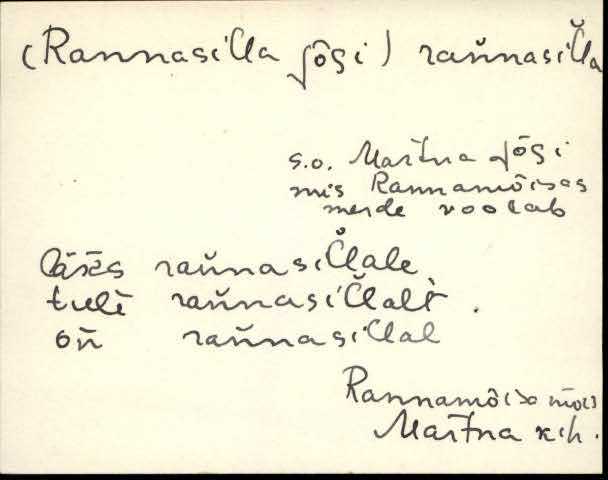 (Rannasilla jõgi) rañnasil̆la
s.o. Martna jõgi
mis Rannamõisas
merde voolab
läks rañnasil̆lale
tuli rañnasil̆lalt.
on rañnasillal
Rannamõisa mõis
Martna kih.